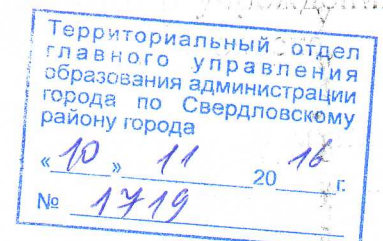 Территориальный отдел
главного управления
образования администрации
города по Свердловскому
району города
«10» 11 2016 г.
№ 1719